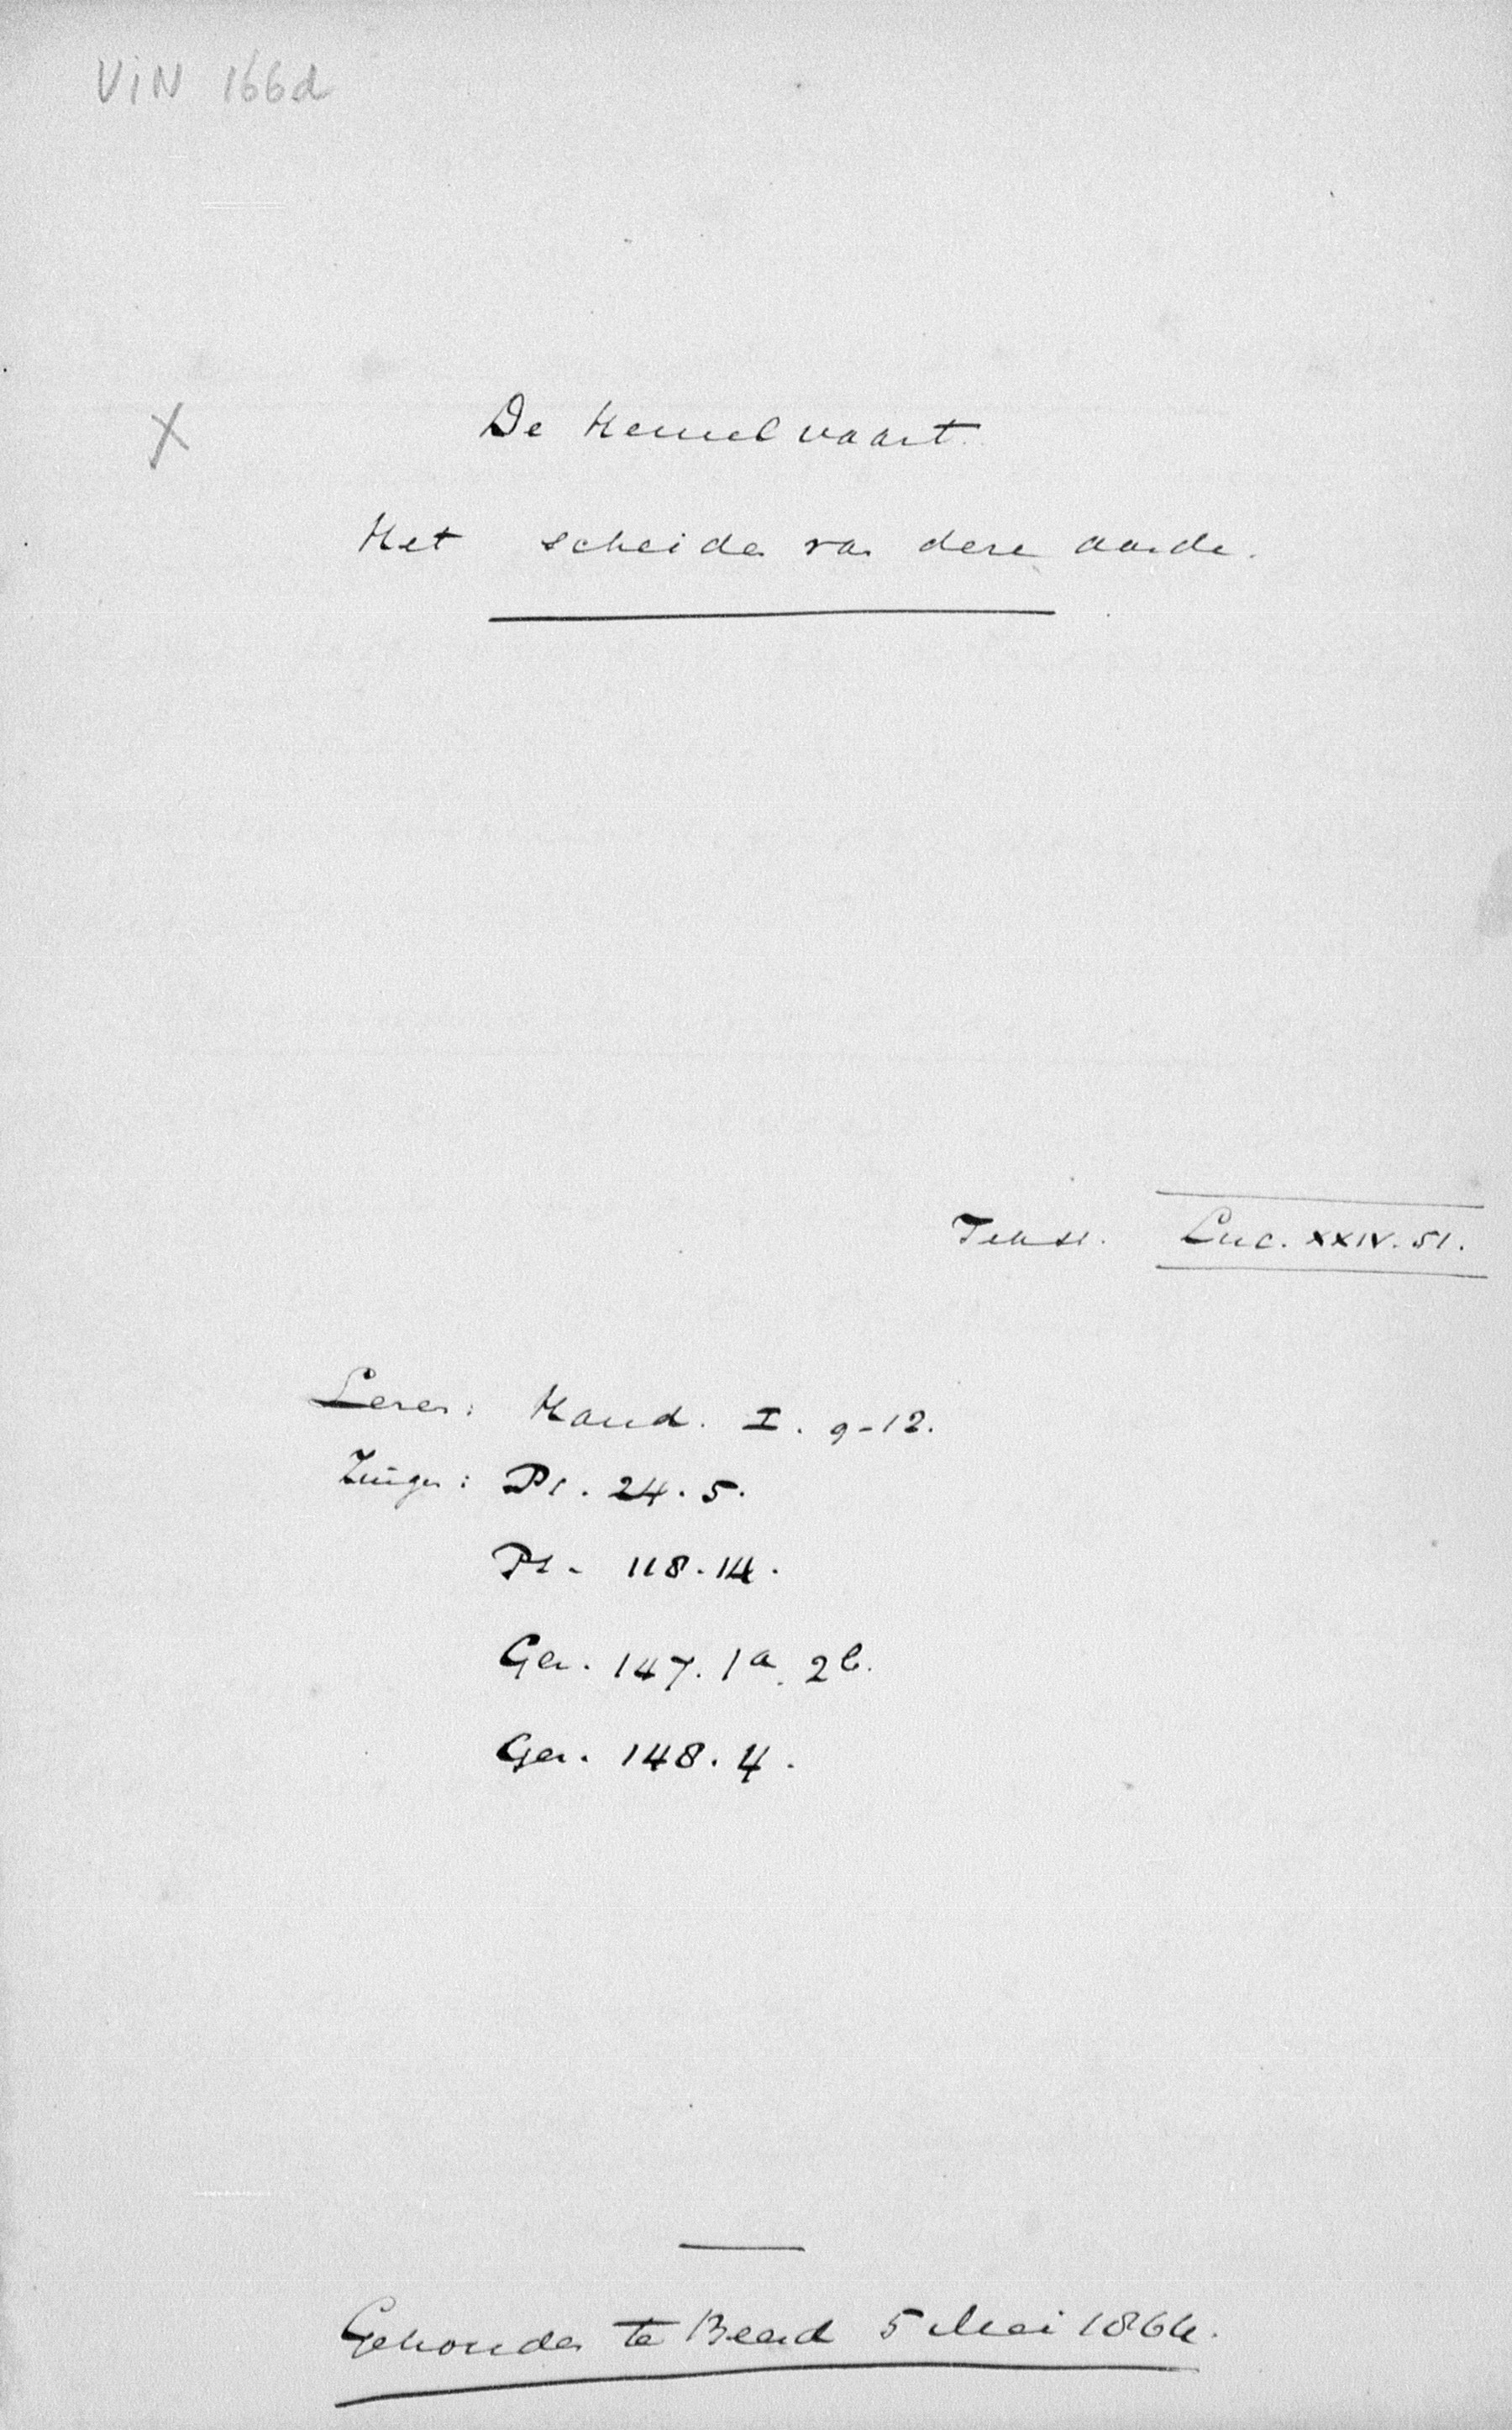 ViN 166d
X
De Hemelvaart.
Het scheiden van deze aarde.
Tekst. Luc. XXIV. 51.
Lezen: Hand. I. 9-12.
Zingen: Ps. 24. 5.
Ps. 118. 14.
Gez. 147. 1a. 2b.
Gez. 148. 4.
Gehouden te Beesd 5 Mei 1864.